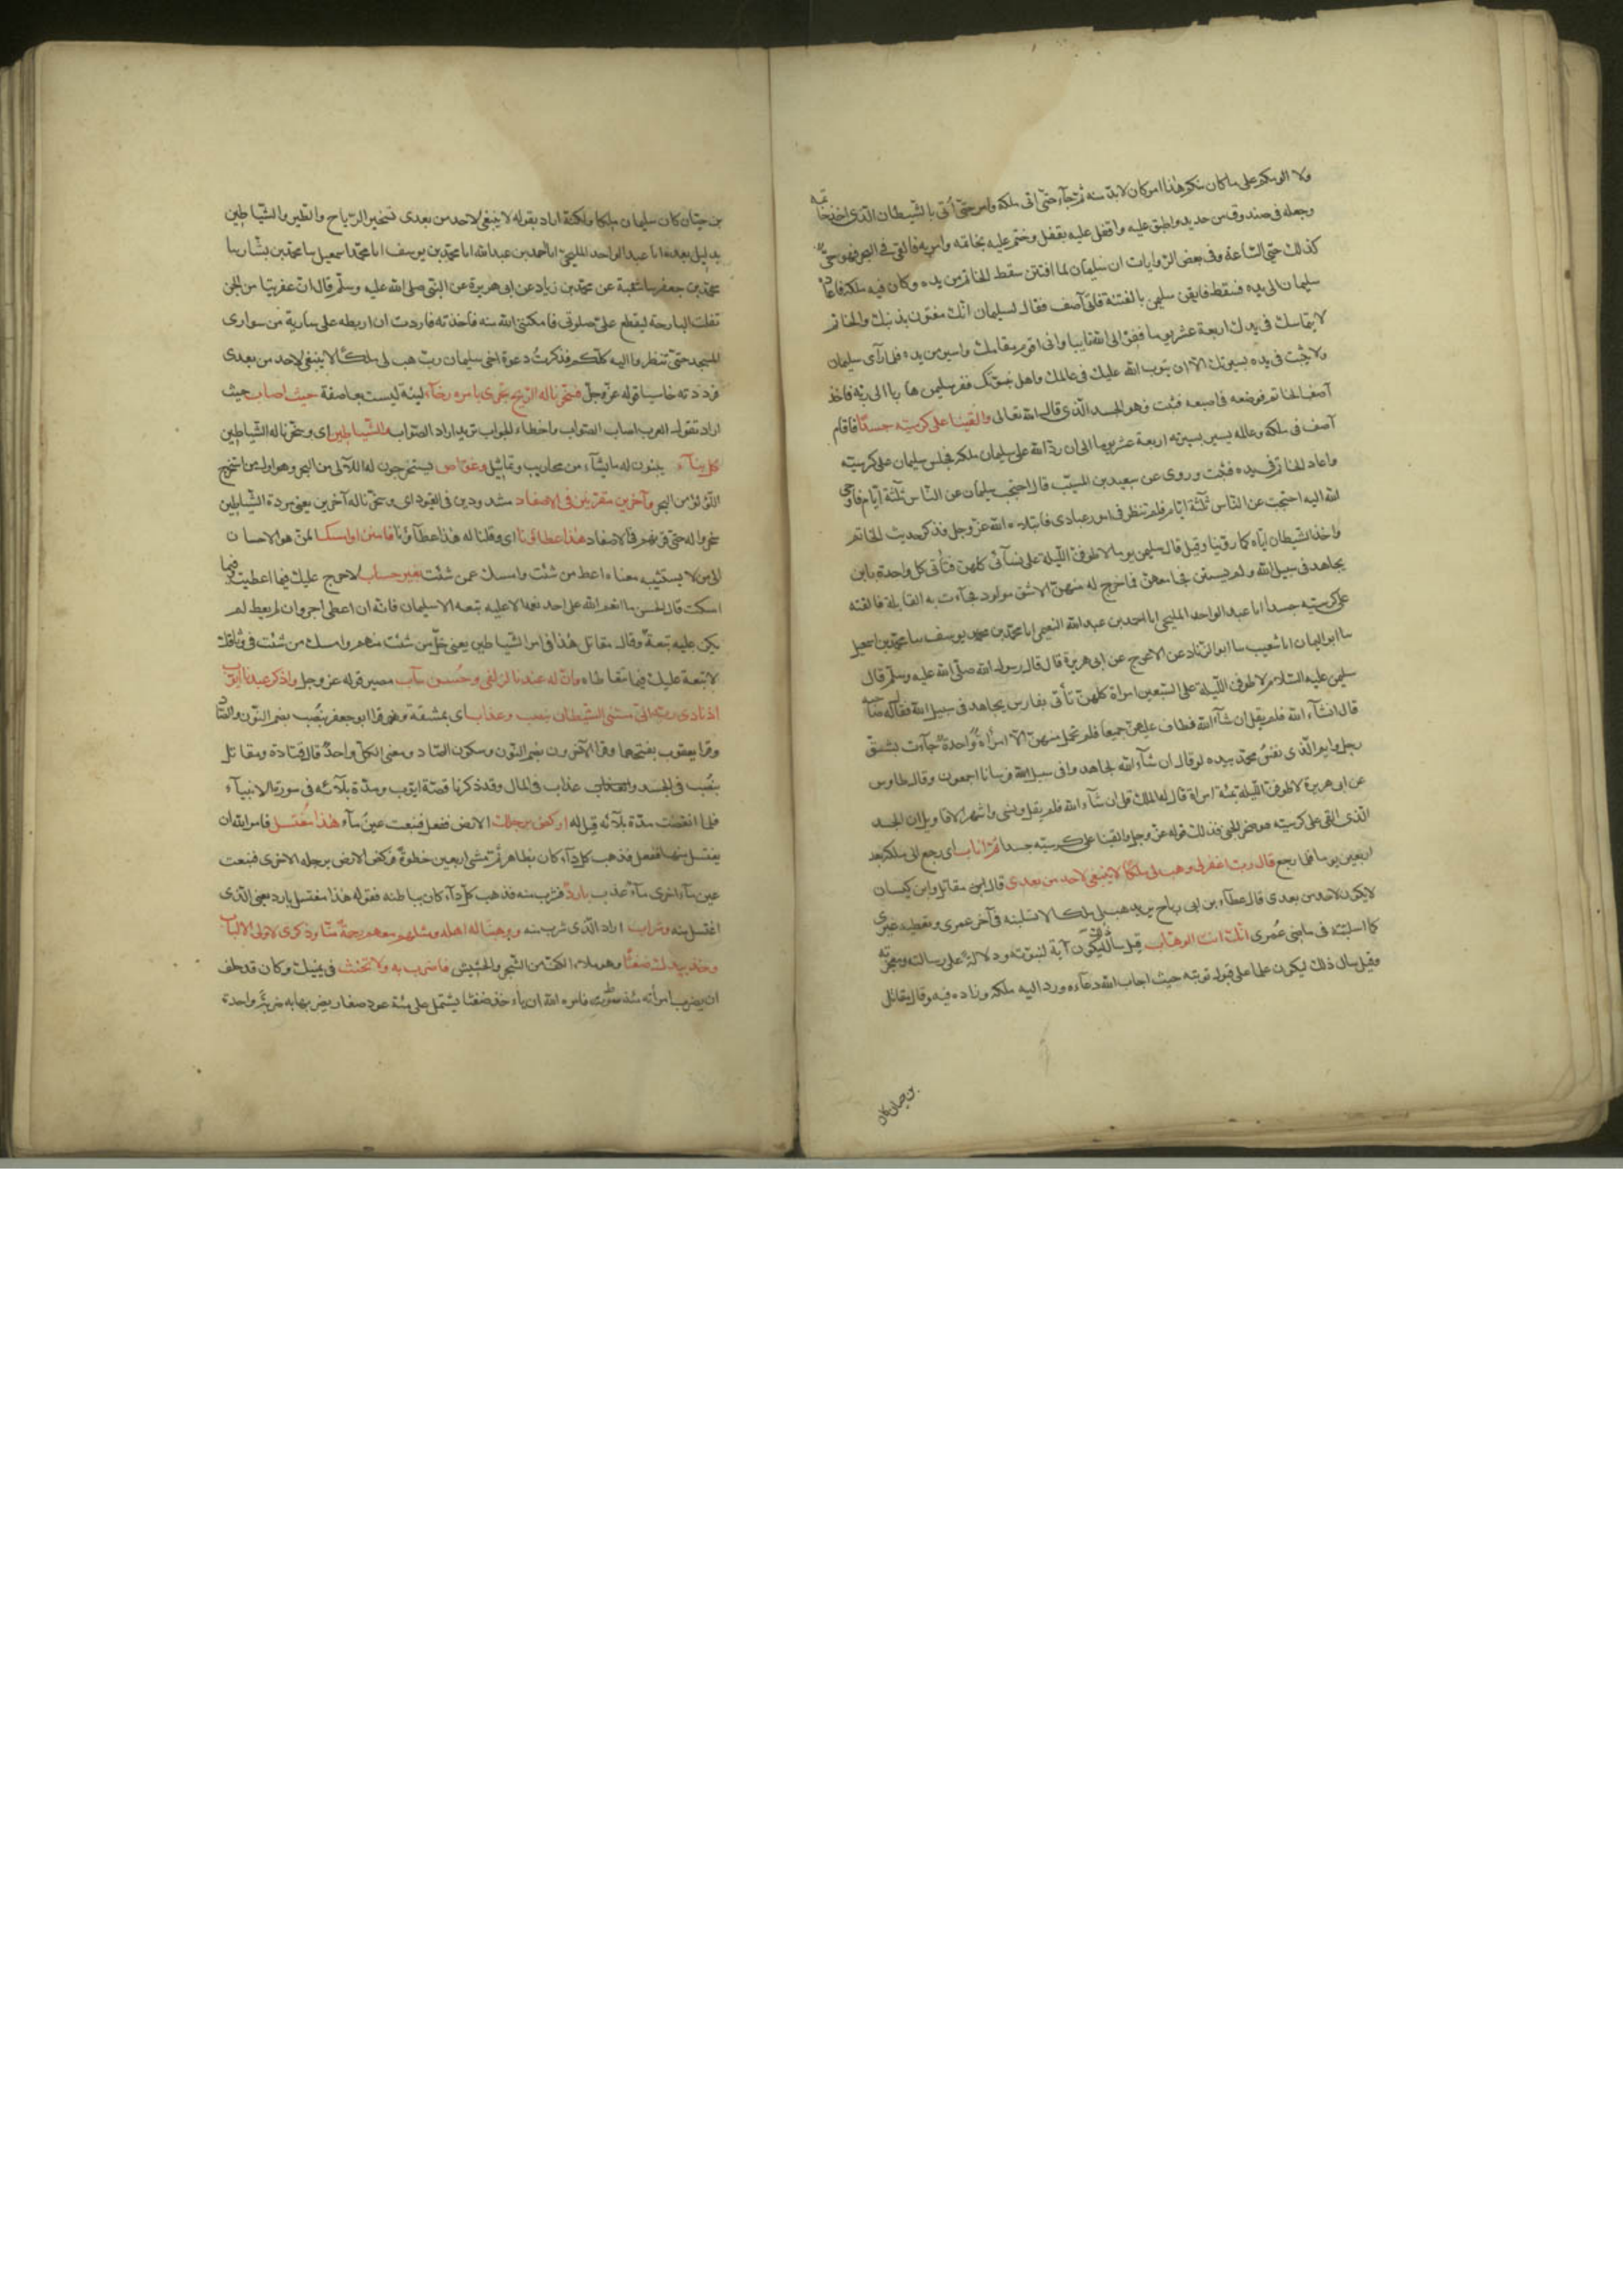 ولا الومكم على ما كان منكم هذا امر كان لا بدّ منه ثم جآء حتّى اتى ملكه وامر حتّى أتى بالشّيطان الّذى اخذ خاتمه
وجعله فى صندوق من حديد واطبق عليه واقفل عليه بقفل وختم عليه بخاتمه وامر به فالقى فى البحر فهو حىّ
كذلك حتى السّاعة وفى بعض الرّوايات ان سليمان لما افتتن سقط الخاتم من يده وكان فيه ملكه فاعاده
سليمان الى يده فسقط فايقن سليمن بالفتنة فاتى آصف فقال لسليمان انّك مفتون بذنبك والخاتم
لا يتماسك فى يدك اربعة عشر يوما ففرّ الى الله تايبا وانى اقوم مقامك واسير من يده فلما رآى سليمان
ولا يثبت فى يده بسيرتك الا ان يتوب الله عليك فى عالمك واهل بيتك ففر سليمن هاربا الى ربّه فاخذ
آصف الخاتم فوضعه فى اصبعه فثبت وهو الجسد الّذى قال الله تعالى والقينا على كرسيّه جسدًا فاقام
آصف فى ملكه وعاله يسير بسيرته اربعة عشر يوما الى ان ردّ الله على سليمان ملكه فجلس سليمان على كرسيّه
واعاد الخاتم فى يده فثبت وروى عن سعيد بن المسيّب قال احتجب سليمان عن النّاس ثلثة ايّام فاوحى
الله اليه احتجبت عن النّاس ثلثة ايّام فلم تنظر فى امور عبادى فابتلاه الله عزّ وجل فذكر حديث الخاتم
واخذ الشيطان ايّاه كما روينا وقيل قال سليمن يوما لاطوفنّ اللّيلة على نسآئى كلهن فتأتى كل واحدة بابن
يجاهد فى سبيل الله ولم يستثن فجامعهنّ فما خرج له منهنّ الا شق مولود فجآءت به القابلة فالقته
على كرسيّه جسدا انا عبد الواحد المليحى انا احمد بن عبد الله النعيمى انا محمّد بن يوسف سا محمّد بن اسمعيل
سا ابو اليمان انا شعيب سا ابو الزّناد عن الاعرج عن ابى هريرة قال قال رسول الله صلّى الله عليه وسلّم قال
سليمن عليه السّلام لاطوفنّ اللّيلة على السّبعين امراة كلهنّ تأتى بفارس يجاهد فى سبيل الله فقال له صاحبه
قال انشآء الله فلم يقل ان شآء الله فطاف عليهنّ جميعا فلم تحمل منهنّ الّا امرأة واحدة جآءت بشقّ
رجل وايم الّذى نفسُ محمّد بيده لو قال ان شآء الله لجاهدوا فى سبيل الله فرسانا اجمعون وقال طاوس
عن ابى هريرة لاطوفنّ اللّيلة بمئة امراة قال له الملك قل ان شآء الله فلم يقل ونسى واشهر الاقاويل ان الجسد
الّذى القى على كرسيّه هو صخر الجنى فذلك قوله عزّ وجل والقينا على كرسيّه جسدا ثمّ اناب اى رجع الى ملكه بعد
اربعين يوما فلما رجع قال ربّ اغفر لى وهب لى ملكًا لا ينبغى لاحد من بعدى قال ابن مقاتل وابن كيسان
لا يكون لاحد من بعدى قال عطآء بن ابى رباح يريد هب لى ملكًا لا تسلبنه فى آخر عمرى وتعطيه غيرى
كما استلبته فى ما مضى عُمرى انّك انت الوهّاب قيل سأل ليكون آية لنبوّته ودلالةً على رسالته ومعجزته
وقيل سال ذلك ليكون علما على قبول توبته حيث اجاب الله دعآءه ورد اليه ملكه وزاده فيه وقال مقاتل
بن حيان كان
بن حيّان كان سليمان ملكا ولكنه اراد بقوله لا ينبغى لاحد من بعدى تسخير الرّياح والطّير والشّياطين
بدليل بعده انا عبد الواحد المليحىّ انا احمد بن عبد الله انا محمّد بن يوسف انا محمّد اسمعيل سا محمّد بن بشّار سا
محمّد بن جعفر سا شعبة عن محمّد بن زياد عن ابى هريرة عن النبّى صلى الله عليه وسلّم قال انّ عفريتا من الجن
تفلت البارحة ليقطع علىّ صلوتى فامكننى الله منه فاخذته فاردت ان اربطه على سارية من سوارى
المسجد حتّى تنظروا اليه كلّكم فذكرتُ دعوة اخى سليمان ربّ هب لى ملكًا لا ينبغى لاحد من بعدى
فرددته خاسيا قوله عزّ وجلّ فسخّرنا له الرّيح تجرى بامره رخآء لينة ليست بعاصفة حيث اصاب حيث
اراد تقول العرب اصاب الصّواب واخطاء الجواب تريد اراد الصّواب والشّياطين اى وسخّرنا له الشياطين
كل بنآء يبنون له ما يشآء من محاريب وتماثيل وغوّاص يستخرجون له اللآلى من البحر وهو اول من استخرج
اللّؤلؤ من البحر وآخرين مقرّنين فى الاصفاد مشدودين فى القيود اى وسخّرنا له آخرين يعنى مردة الشّياطين
سخروا له حتى قرنهم فى الاصفاد هذا عطاؤنا اى وقلنا له هذا عطآؤنا فامنن او امسك المنّ هو الاحسان
الى من لا يستثيبه معناه اعط من شئت وامسك عمن شئت بغير حساب لا حرج عليك فيما اعطيت وفيما
امسكت قال الحسن ما انعم الله على احد نعمة الا عليه تبعة الا سليمان فانّه ان اعطى اجر وان لم يعط لم
يكن عليه تبعةٌ وقال مقاتل هذا فى امر الشياطين يعنى خلّ من شئت منهم وامسك من شئت فى وثاقك
لا تبعة عليك فيما تتعاطاه وانّ له عندنا لزلفى وحُسن مآب مصير قوله عز وجل واذكر عبدنا ايّوب
اذ نادى ربّه انّى مسّنى الشّيطان بنصب وعذاب اى بمشقة وضرّ قرا ابو جعفر بنُصُب بضم النّون والصّاد
وقرا يعقوب بفتحهما وقرا الآخرون بضم النّون وسكون الصّاد ومعنى الكلّ واحدٌ قال قتادة ومقاتل
بنُصب فى الجسد وعذاب فى المال وقد ذكرنا قصّة ايّوب ومدّة بلآئه فى سورة الانبيآء
فلما انقضت مدّة بلآئه قيل له اركض برجلك الارض ففعل فنبعت عينُ مآء هذا مُغتسل فامر الله ان
يغتسل منها ففعل فذهب كل دآء كان بظاهره ثمّ مشى اربعين خطوةً فركض الارض برجله الاخرى فنبعت
عين مآء اخرى مآءٌ عذب باردٌ فشرب منه فذهب كلّ دآء كان بباطنه فقوله هذا مغتسل بارد يعنى الّذى
اغتسل منه وشراب اراد الّذى شرب منه ووهبنا له اهله ومثلهم معهم رحمةً منّا وذكرى لاولى الالباب
وخذ بيدك ضغثًا وهو ملء الكفّ من الشّجر والحشيش فاضرب به ولا تحنث فى يمينك وكان قد حلف
ان يضرب امرأته مئة سوط فامره الله ان ياخذ ضغثا يشتمل على مئة عود صغار يضربها به ضربةً واحدة